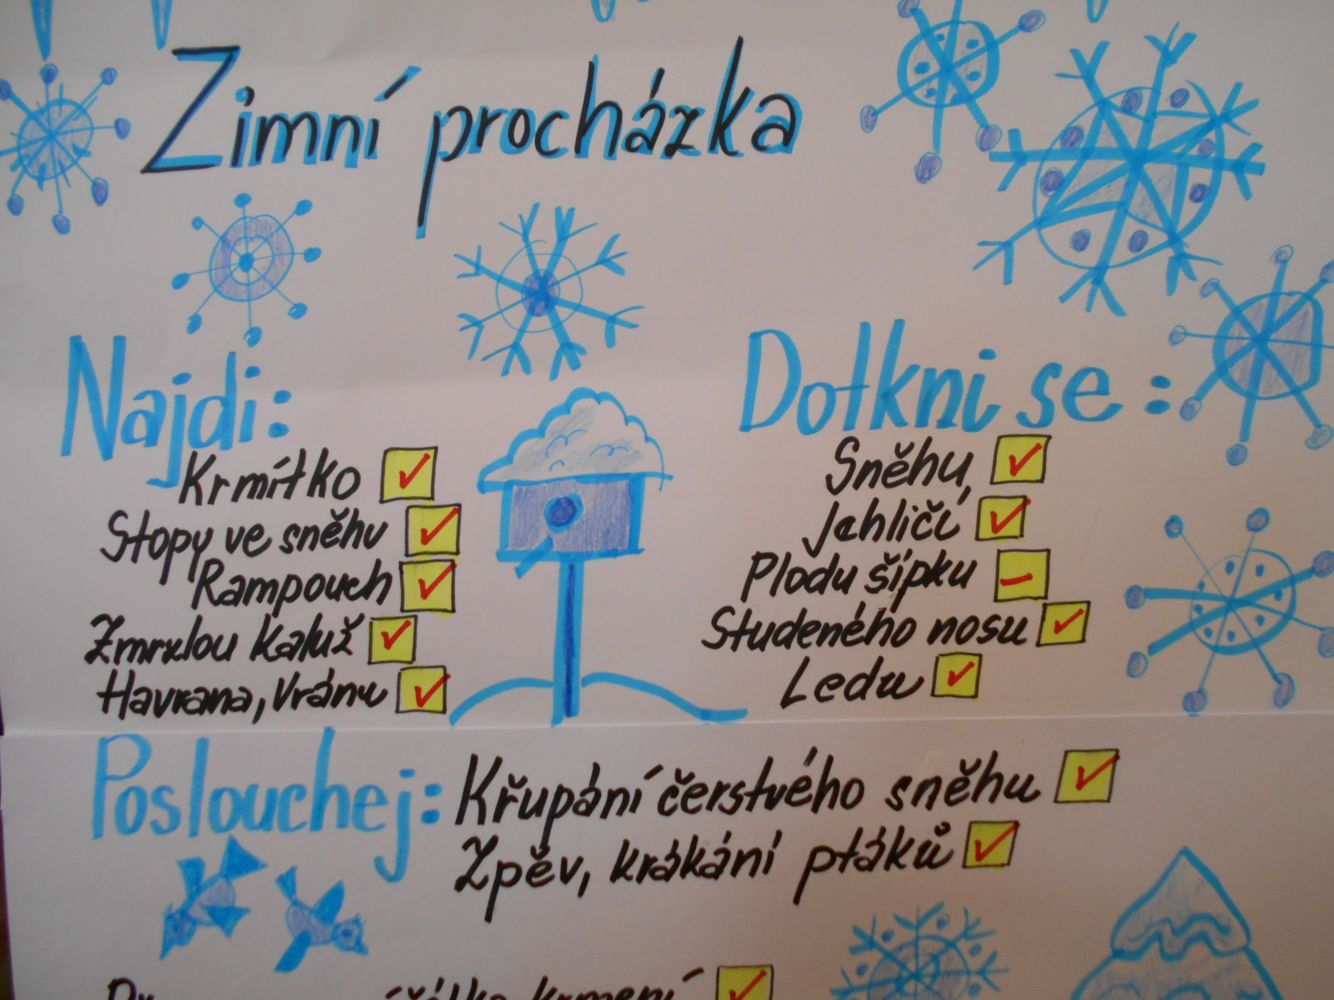 Zimní procházka
Najdi:
Krmítko
Stopy ve sněhu
Rampouch
Zmrzlou kaluž
Havrana, Vránu
Dotkni se:
Sněhu,
Jehličí
Plodu šípku
Studeného nosu
Ledu
Poslouchej: Křupání čerstvého sněhu
Zpěv, krákání ptáků
krmení